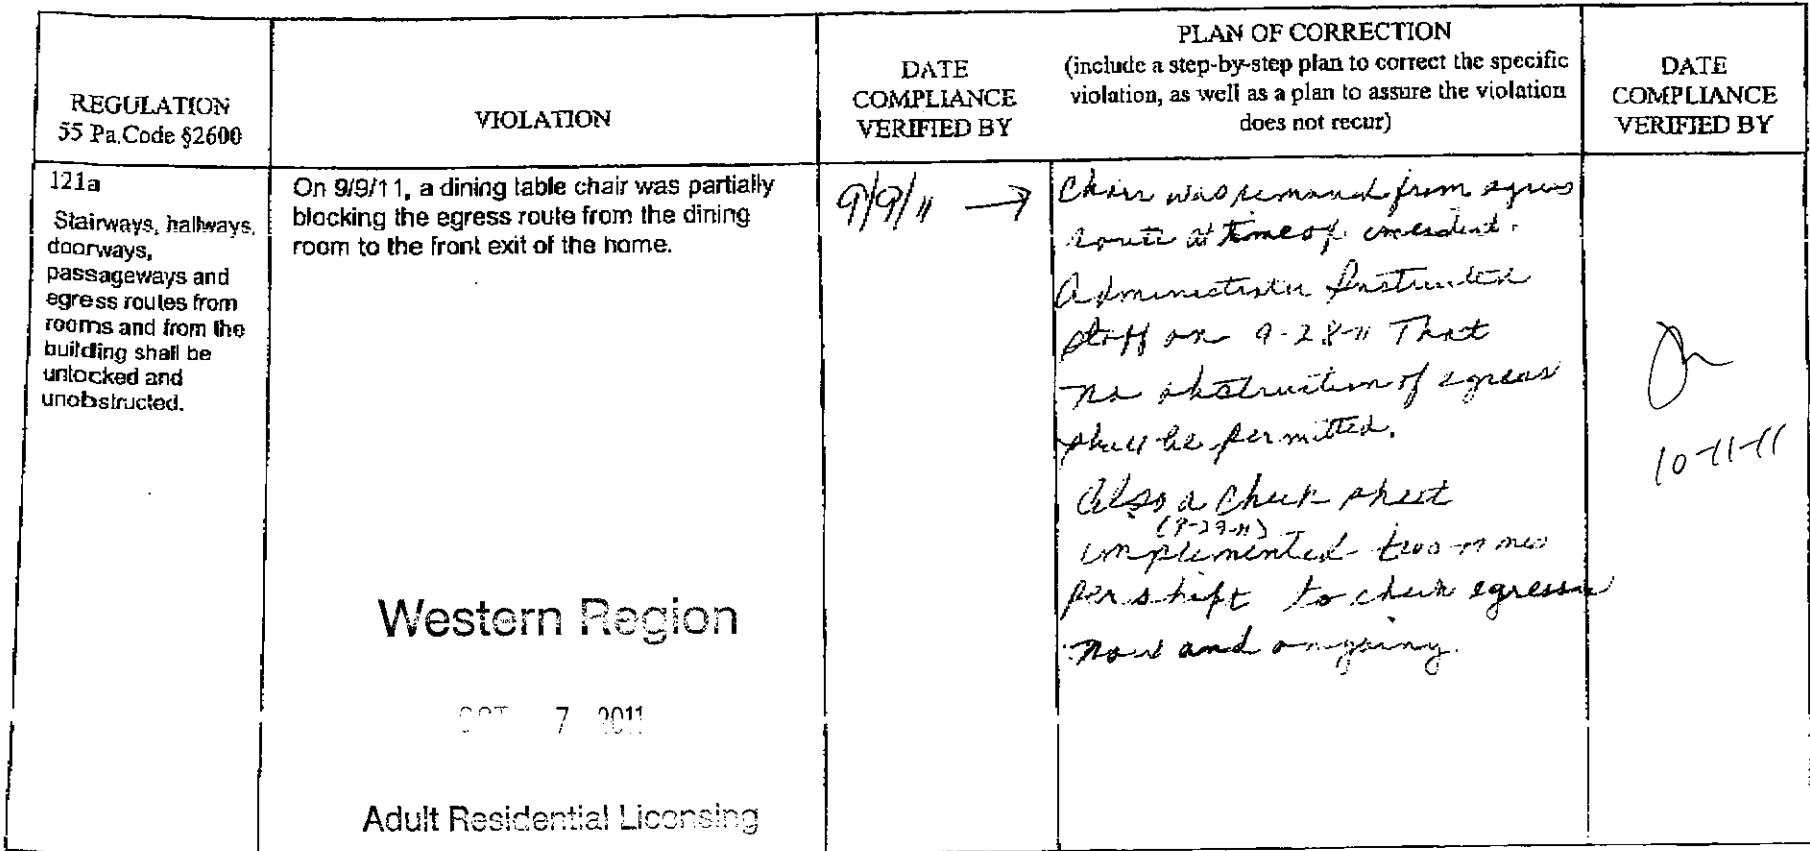 REGULATION
55 Pa.Code §2600
VIOLATION
DATE
COMPLIANCE
VERIFIED BY
PLAN OF CORRECTION
(include a step-by-step plan to correct the specific
violation, as well as a plan to assure the violation
does not recur)
DATE
COMPLIANCE
VERIFIED BY
121a
Stairways, hallways,
doorways,
passageways and
egress routes from
rooms and from the
building shall be
unlocked and
unobstructed.
On 9/9/11, a dining table chair was partially
blocking the egress route from the dining
room to the front exit of the home.
9/9/11 →
Chair was removed from egress
route at time of
Administrator Instructed
staff on 9-28-11 That
no obstruction of egress
shall be permitted.
Also a Check sheet
implemented
per shift to check egresses
now and ongoing.
10-11-11
Western Region
OCT 7 2011
Adult Residential Licensing